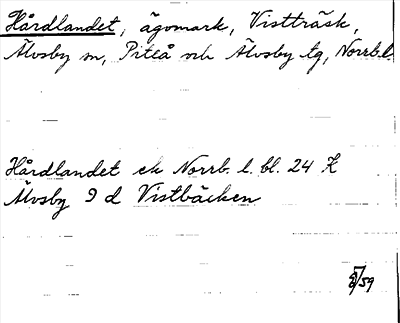 Hårdlandet, ägomark, Vistträsk,
Älvsby sn, Piteå och Älvsby tg, Norrb.l.
Hårdlandet ek Norrb. l. bl. 24 K
Älvsby 9 d Vistbäcken
/59